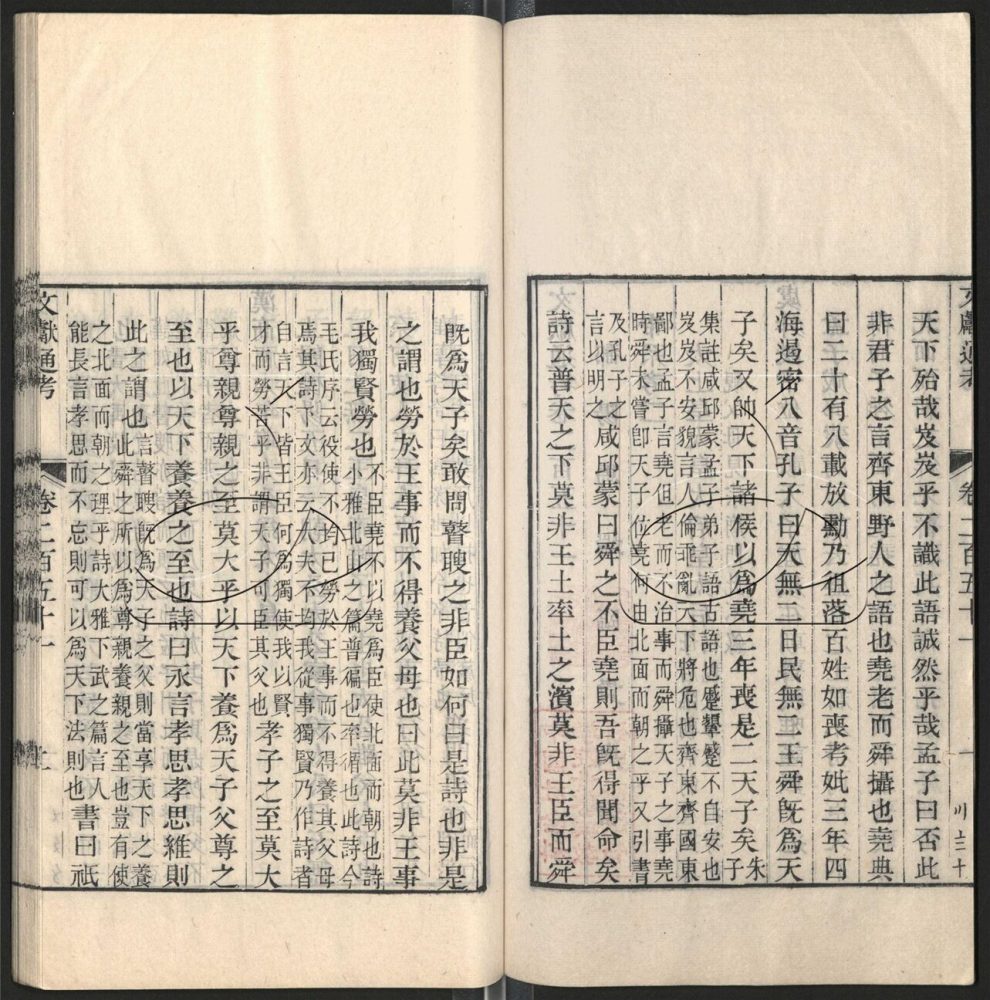 文獻通考 卷二百五十一 一
天下殆哉岌岌乎不識此語誠然乎哉孟子曰否此
非君子之言齊東野人之語也堯老而舜攝也堯典
曰二十有八載放勳乃徂落百姓如喪考妣三年四
海遏密八音孔子曰天無二日民無二王舜旣爲天
子矣又帥天下諸侯以爲堯三年喪是二天子矣朱子
集註咸邱蒙孟子弟子語古語也蹙顰蹙不自安也
岌岌不安貌言人倫乖亂天下將危也齊東齊國東
鄙也孟子言堯但老而不治事而舜攝天子之事堯
時舜未嘗卽天子位堯何由北面而朝之乎又引書
及孔子之
言以明之
咸邱蒙曰舜之不臣堯則吾旣得聞命矣
詩云普天之下莫非王土率土之濱莫非王臣而舜
旣爲天子矣敢問瞽瞍之非臣如何曰是詩也非是
之謂也勞於王事而不得養父母也曰此莫非王事
我獨賢勞也
不臣堯不以堯爲臣使北面而朝也詩
小雅北山之篇普徧也率循也此詩今
毛氏序云役使不均已勞於王事而不得養其父母
焉其詩下文亦云大夫不均我從事獨賢乃作詩者
自言天下皆王臣何爲獨使我以賢
才而勞苦乎非謂天子可臣其父也
孝子之至莫大
乎尊親尊親之至莫大乎以天下養爲天子父尊之
至也以天下養養之至也詩曰永言孝思孝思維則
此之謂也
言瞽瞍旣爲天子之父則當享天下之養
此舜之所以爲尊親養親之至也豈有使
之北面而朝之理乎詩大雅下武之篇言人
能長言孝思而不忘則可以爲天下法則也
書曰祇
文獻通考 卷二百五十一 二